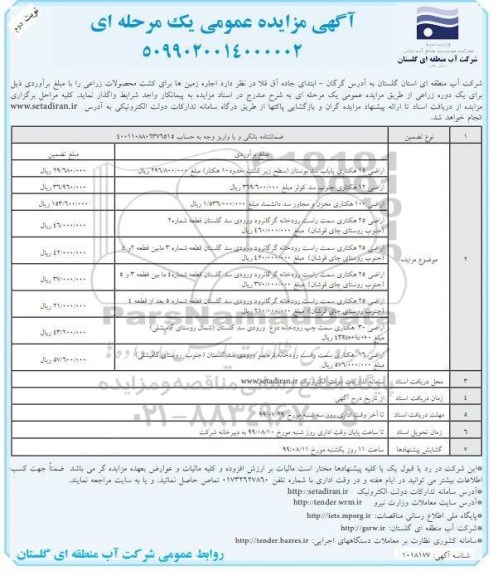 نوبت دوم
آگهی مزایده عمومی یک مرحله ای
۵۰۹۹۰۲۰۰۱۴۰۰۰۰۰۲
شرکت آب منطقه ای گلستان
شرکت آب منطقه ای استان گلستان به آدرس گرگان - ابتدای جاده آق قلا در نظر دارد اجاره زمین ها برای کشت محصولات زراعی را با مبلغ برآوردی ذیل
برای یک دوره زراعی از طریق مزایده عمومی یک مرحله ای به شرح مندرج در اسناد مزایده به پیمانکار واجد شرایط واگذار نماید. کلیه مراحل برگزاری
مزایده از دریافت اسناد تا ارائه پیشنهاد مزایده گران و بازگشایی پاکتها از طریق درگاه سامانه تدارکات دولت الکترونیکی به آدرس www.setadiran.ir
انجام خواهد شد.
۱ نوع تضمین ضمانتنامه بانکی و یا واریز وجه به حساب ۴۰۰۱۱۰۸۸۰۶۳۷۶۵۱۵
۲ موضوع مزایده
مبلغ برآوردی مبلغ تضمین
اراضی ۲۵ هکتاری پایاب سد بوستان (سطح زیر کشت حدود ۱۰ هکتار) مبلغ ۲۹۶/۸۰۰/۰۰۰ ریال ۲۹/۶۸۰/۰۰۰ ریال
اراضی ۱۲ هکتاری جنوب سد کوثر مبلغ ۳۶۹/۶۰۰/۰۰۰ ریال ۳۶/۹۶۰/۰۰۰ ریال
اراضی ۱۰۰ هکتاری مخزن و مجاور سد دانشمند مبلغ ۱/۵۳۶/۰۰۰/۰۰۰ ریال ۱۵۳/۶۰۰/۰۰۰ ریال
اراضی ۲۵ هکتاری سمت راست رودخانه گرگانرود ورودی سد گلستان قطعه شماره ۲
(جنوب روستای چای قوشان) مبلغ ۴۶۰/۰۰۰/۰۰۰ ریال ۴۶/۰۰۰/۰۰۰ ریال
اراضی ۲۵ هکتاری سمت راست رودخانه گرگانرود ورودی سد گلستان قطعه شماره ۳ مابین قطعه ۲ و ۴
(جنوب روستای چای قوشان) مبلغ ۴۲۰/۰۰۰/۰۰۰ ریال ۴۲/۰۰۰/۰۰۰ ریال
اراضی ۲۵ هکتاری سمت راست رودخانه گرگانرود ورودی سد گلستان قطعه شماره ۴ ما بین قطعه ۳ و ۵
(جنوب روستای چای قوشان) مبلغ ۳۷۰/۰۰۰/۰۰۰ ریال ۳۷/۰۰۰/۰۰۰ ریال
اراضی ۲۵ هکتاری سمت راست رودخانه گرگانرود ورودی سد گلستان قطعه شماره ۵ بعد از قطعه ۴
(جنوب روستای چای قوشان) مبلغ ۲۱۰/۰۰۰/۰۰۰ ریال ۲۱/۰۰۰/۰۰۰ ریال
اراضی ۳۰ هکتاری سمت چپ رودخانه دوغ ورودی سد گلستان (شمال روستای گالیکش)
مبلغ ۴۳۲/۰۰۰/۰۰۰ ریال ۴۳/۲۰۰/۰۰۰ ریال
سد گلستان (جنوب روستای گالیکش)
مبلغ ۵۷۶/۰۰۰/۰۰۰ ریال ۵۷/۶۰۰/۰۰۰ ریال
۳ محل دریافت اسناد سامانه تدارکات دولت الکترونیک www.setadiran.ir
۴ زمان دریافت اسناد از تاریخ درج آگهی
۵ مهلت دریافت اسناد تا آخر وقت اداری روز سه شنبه مورخ ۹۹/۰۷/۲۹
۶ زمان تحویل اسناد تا ساعت پایان وقت اداری روز شنبه مورخ ۹۹/۰۸/۱۰ به دبیرخانه شرکت
۷ گشایش پیشنهادها ساعت ۱۱ روز یکشنبه مورخ ۹۹/۰۸/۱۱
*این شرکت در رد یا قبول یک یا کلیه پیشنهادها مختار است مالیات بر ارزش افزوده و کلیه مالیات و عوارض بعهده مزایده گر می باشد. ضمناً جهت کسب
اطلاعات بیشتر می توانید در ایام هفته و در وقت اداری با شماره تلفن ۰۱۷۳۲۶۲۷۸۶۰ تماس حاصل نمائید. و یا به سایت مراجعه نمایند.
*آدرس سایت سامانه تدارکات دولت الکترونیک http://setadiran.ir
*آدرس سایت معاملات وزارت نیرو http://tender.wrm.ir
*پایگاه ملی اطلاع رسانی مناقصات: http://iets.mporg.ir
*شرکت آب منطقه ای گلستان: http://gsrw.ir
*سامانه کشوری نظارت بر معاملات دستگاههای اجرایی: http://tender.bazres.ir
شناسه آگهی: ۱۰۱۸۱۷۷
روابط عمومی شرکت آب منطقه ای گلستان
ParsNamadData
۰۲۱-۸۸۳۴۹۶۷۰-۵